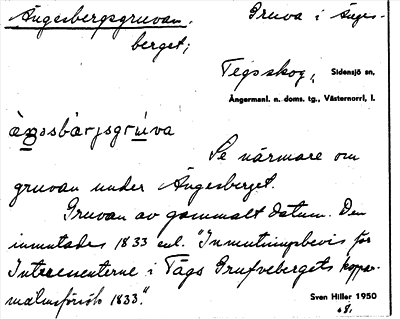 Ängesbergsgruvan.
Gruva i Änges-
berget;
Tegsskog, Sidensjö sn,
Ångermanl. n. doms. tg., Västernorrl. l.
àŋəsbàrjsgrúva
Se närmare om
gruvan under Ängesberget.
Gruvan av gammalt datum. Den
inmutades 1833 enl. "Inmutningsbevis för
Intressenterne i Tägs Grufvebergets koppar-
malmsförsök 1833."
Sven Hiller 1950
s 8.